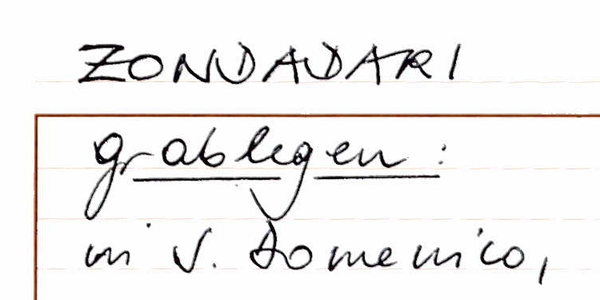 ZONDADARI
grablegen:
in S. Domenico,